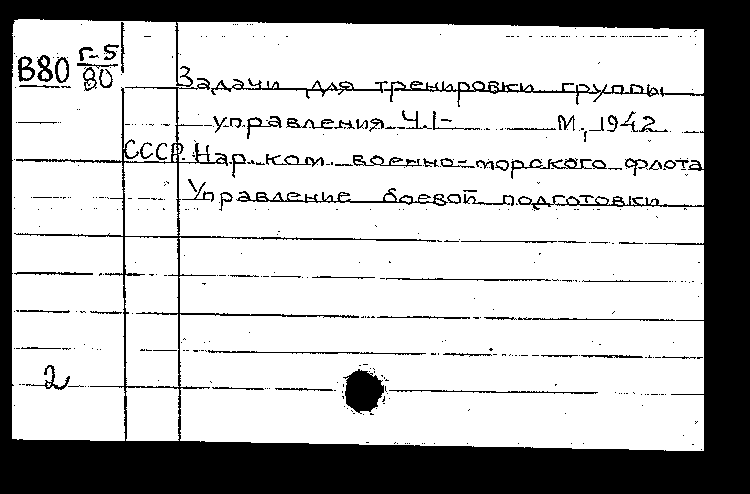 В80 Г-5/80
Задачи для тренировки группы
управления Ч.I- М., 1942
СССР. Нар. ком. военно-морского флота
Управление боевой подготовки
2